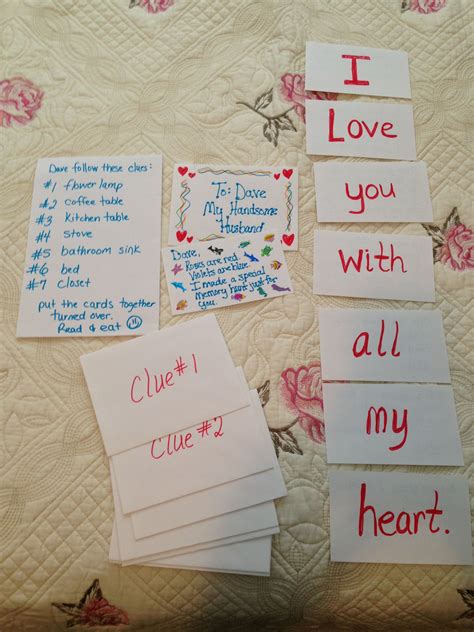 Dave follow these clues:
#1 flower lamp
#2 coffee table
#3 Kitchen table
#4 Stove
#5 bathroom sink
#6 bed
#7 closet
put the cards together
turned over.
Read & eat
To: Dave
My Handsome
Husband
Dave,
Roses are red.
Violets are blue.
I made a special
Memory hunt just for
you.
Clue #1
Clue #2
I
Love
you
with
all
my
heart.